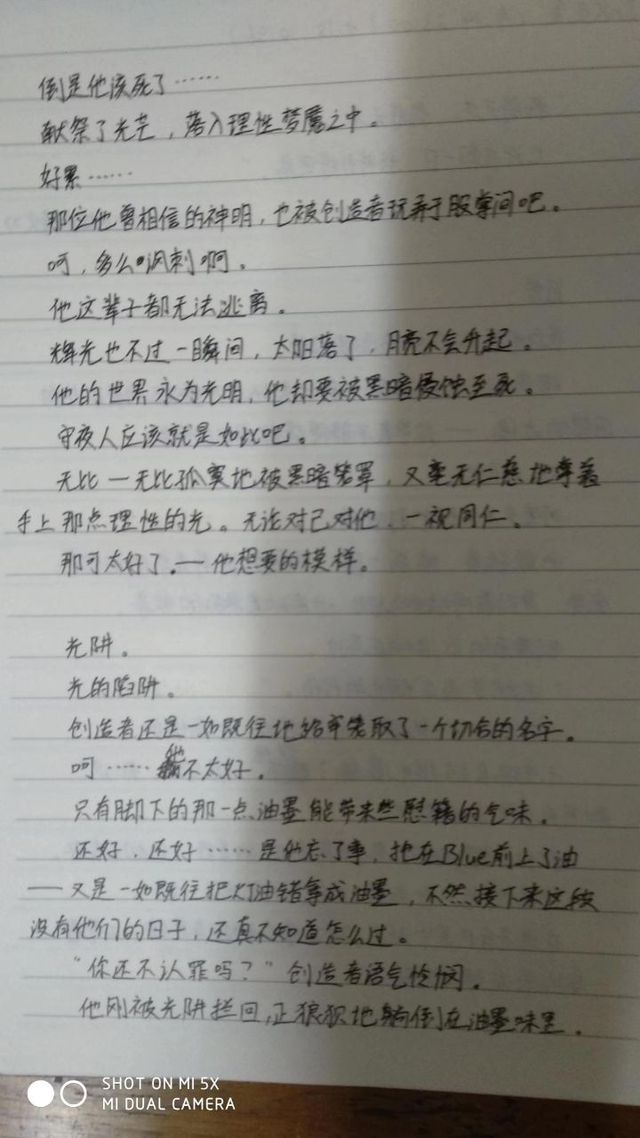 倒是他该死了……
献祭了光芒，落入理性梦魇之中。
好累……
那位他曾相信的神明，也被创造者玩弄于股掌间吧。
呵，多么讽刺啊。
他这辈子都无法逃离。
辉光也不过一瞬间，太阳落了，月亮不会升起。
他的世界永为光明，他却要被黑暗侵蚀至死。
守夜人应该就是如此吧。
无比——无比孤寞地被黑暗笼罩，又毫无仁慈地拿着
手上那点理性的光。无论对己对他，一视同仁。
那可太好了。——他想要的模样。
光阱。
光的陷阱。
创造者还是一如既往地给牢笼取了一个切合的名字。
呵……他不太好。
只有脚下的那一点油墨能带来些慰籍的气味。
还好，还好……是他忘了事，把在Blue前上了油
——又是一如既往把灯油错拿成油墨，不然接下来这段
没有他们的日子，还真不知道怎么过。
“你还不认罪吗？”创造者语气怜悯。
他刚被光阱拦回，正狼狈地躺倒在油墨味里。
SHOT ON MI 5X
MI DUAL CAMERA